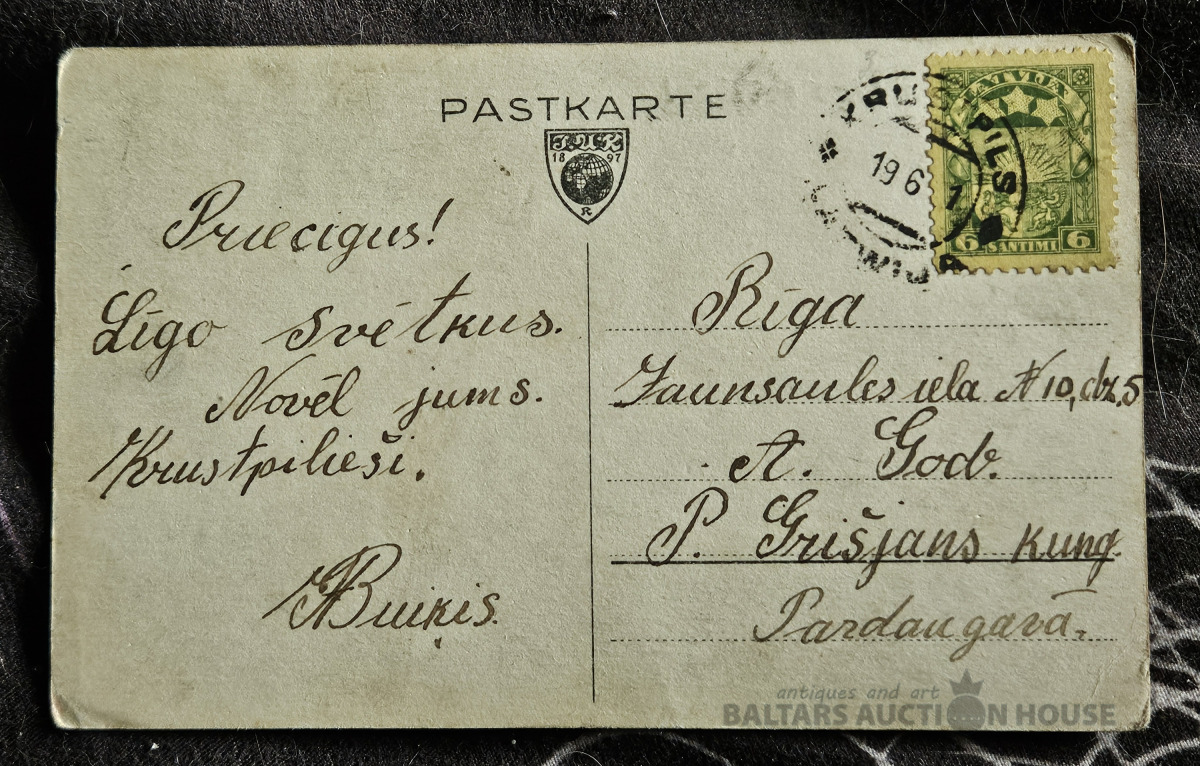 PASTKARTE
J.U.K
18 97
R
Priecigus!
Līgo svētkus.
Novēl jums.
Krustpilieši.
ABuiķis.
KRUSTPILS
19 6
LATWIJA
LATVIJA
6 SANTIMI 6
Rīga
Jaunsaules iela N 10, dz. 5
A. God.
P. Grišjans kung.
Pardaugavā.
antiques and art
BALTARS AUCTION HOUSE